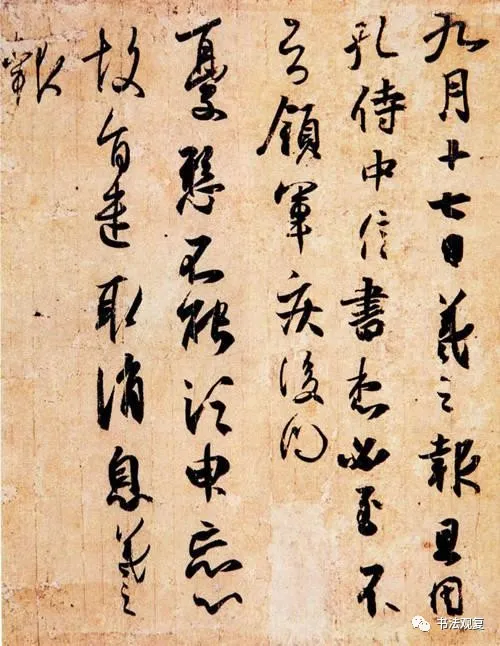 九月十七日羲之報且因
孔侍中信書想必至不
知領軍疾後問
憂懸不能須臾忘心
故旨遣取消息羲之
報
书法观复